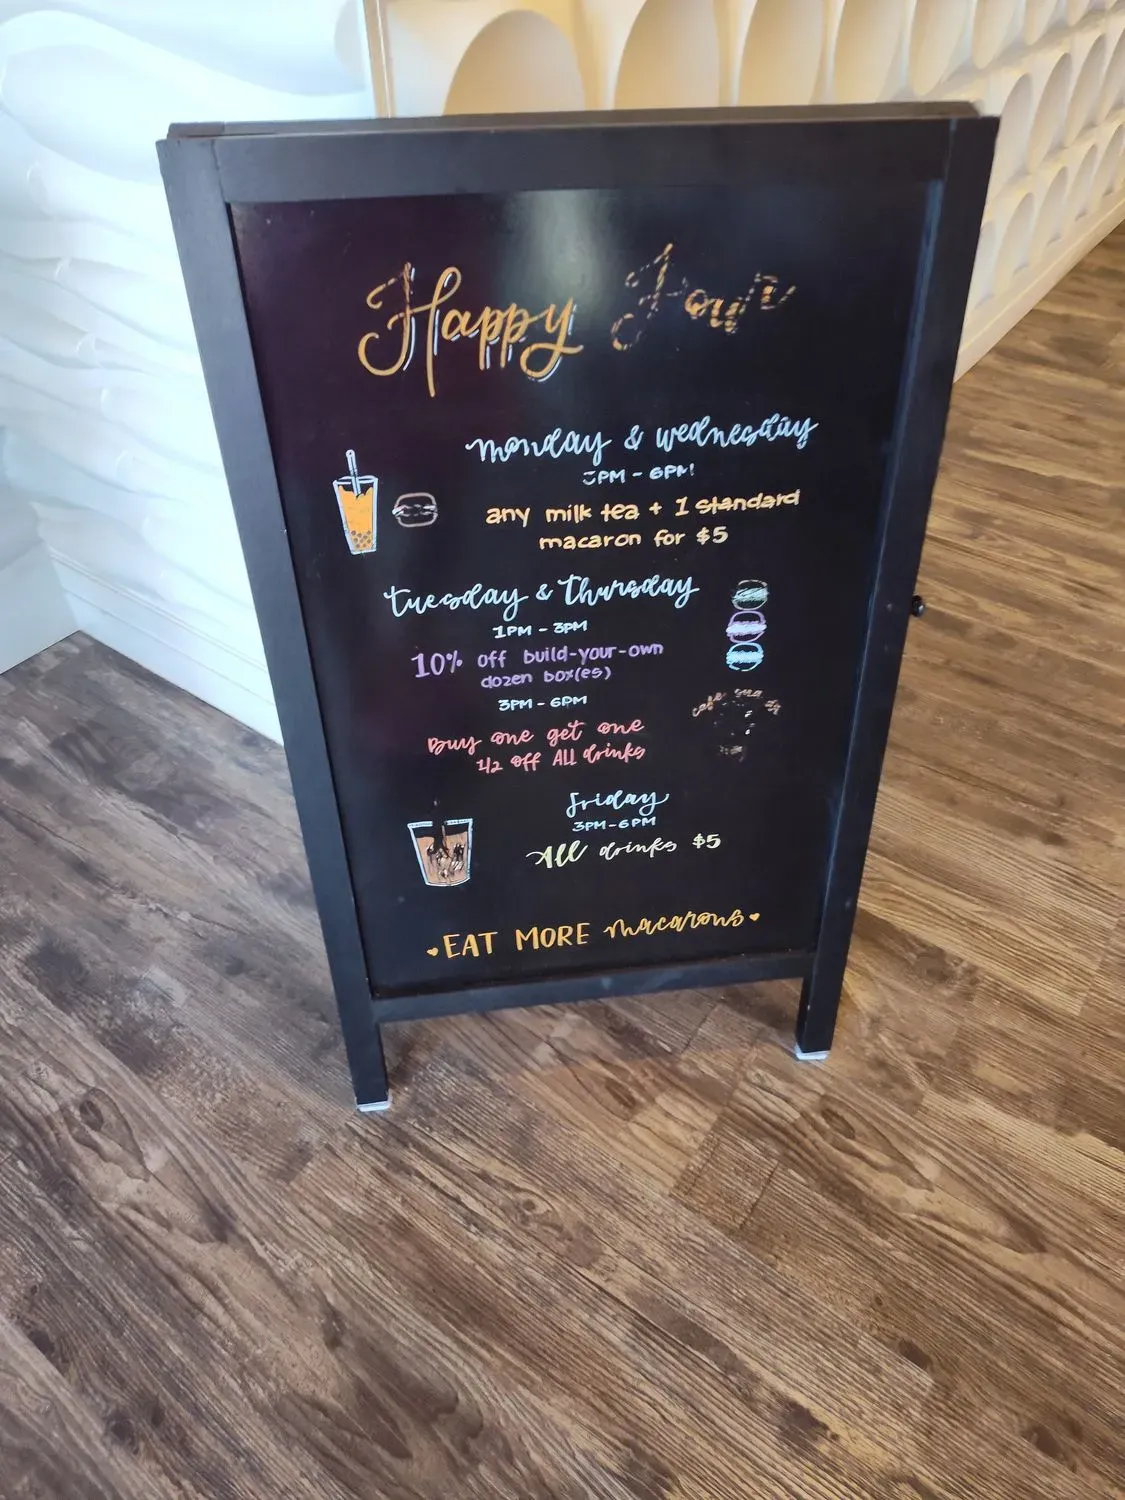 Happy Hour
monday & wednesday
3PM - 6PM!
any milk tea + 1 standard
macaron for $5
tuesday & thursday
1PM - 3PM
10% off build-your-own
dozen box(es)
3PM - 6PM
Buy one get one
1/2 off All drinks
friday
3PM-6PM
All drinks $5
EAT MORE macarons